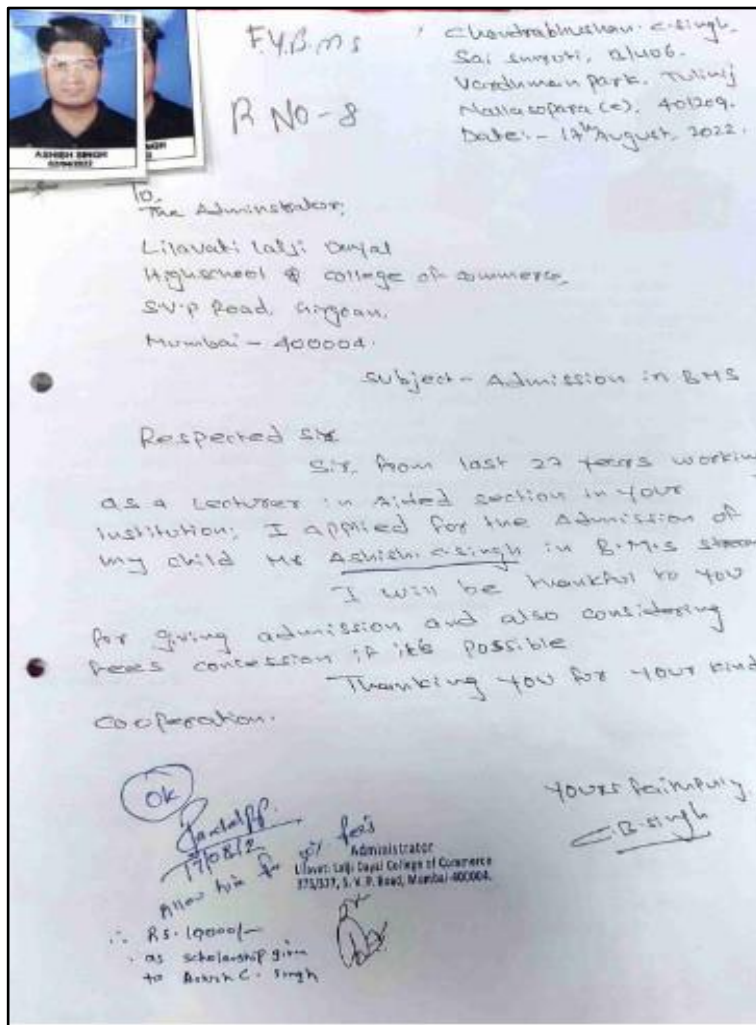 F.Y.B.MS
R NO-8
ASHISH SINGH
02/04/2022
Chandrabhushan.C.Singh.
Sai Sumruti, B/406.
Vardhman Park, Tulinj
Nallasopara (E), 401209.
Date:- 17th August, 2022.
To,
The Adminstrator,
Lilavati Lalji Dayal
Highschool & college of commerce,
S.V.P Road, Girgoan,
Mumbai - 400004.
Subject- Admission in BMS
Respected Sir
Sir, from last 27 years working
as a Lecturer in Aided section in your
institution; I applied for the Admission of
my child Mr Ashish.C.Singh in B.M.S stream
I will be thankful to you
for giving admission and also considering
fees concession if it's possible
Thanking you for your kind
cooperation.
Yours faithfully
C.B.Singh
OK
17/08/2
Allow him for fees
Administrator
Lilavati Lalji Dayal College of Commerce
375/377, S. V. P. Road, Mumbai-400004.
∴ RS. 10000/-
as scholarship given
to Ashish C. Singh